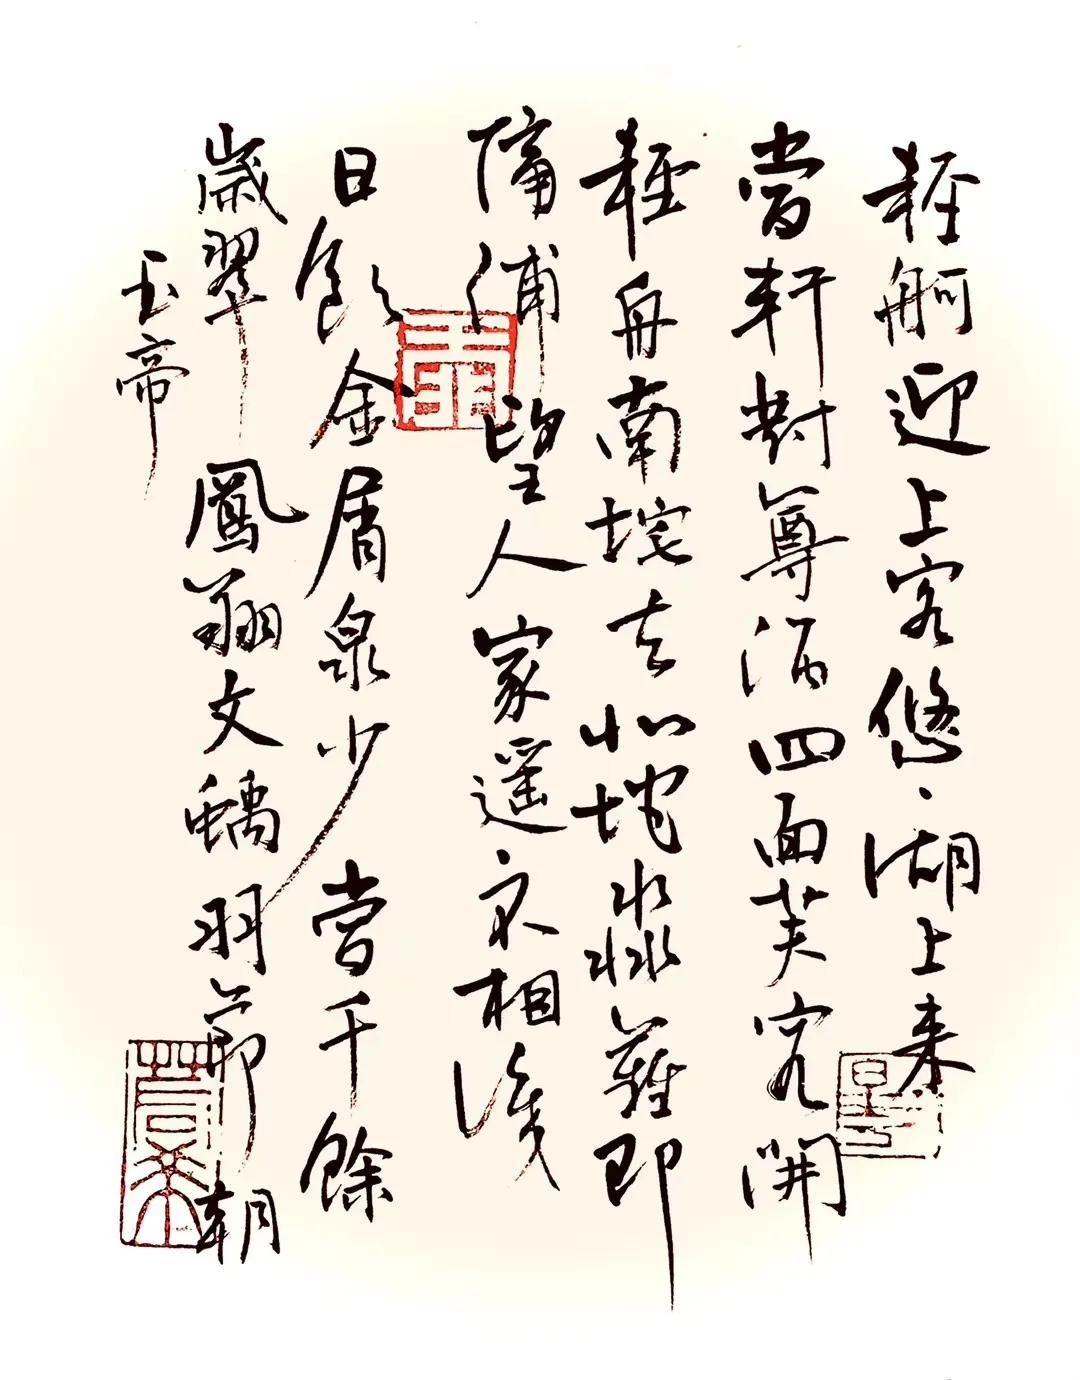 輕舸迎上客悠〻湖上来
當軒對尊酒四面芙容開
輕舟南垞去北垞淼難即
隔浦望人家遥〻不相識
日飲金屑泉少當千餘
歲翠鳳翔文螭羽節朝
玉帝